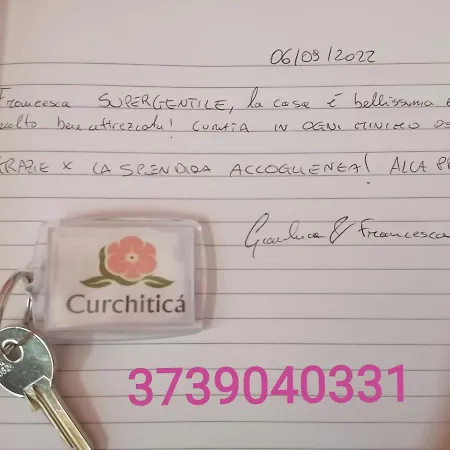 06/09/2022
Francesca SUPERGENTILE, la casa è bellissima e
molto ben attrezzata! CURATA IN OGNI MINIMO DE
GRAZIE X LA SPLENDIDA ACCOGLIENZA! ALLA PR
Gianluca & Francesca
Curchiticá
3739040331